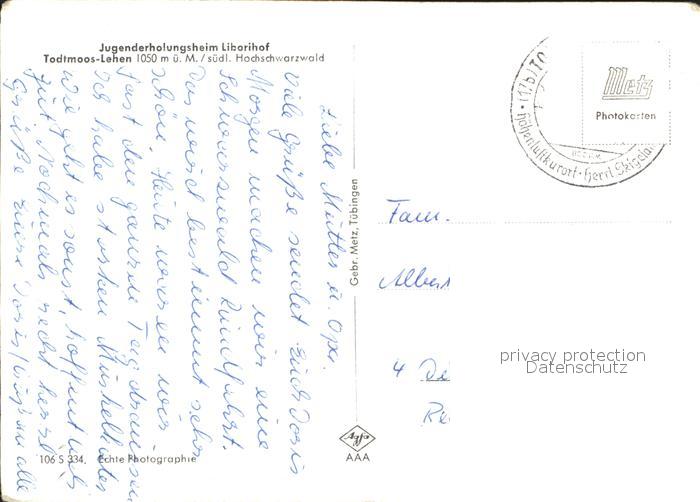 Jugenderholungsheim Liborihof
Todtmoos-Lehen 1050 m ü. M. / südl. Hochschwarzwald
Liebe Mutter u. Opa.
Viele Grüße sendet Euch Doris
Morgen machen wir eine
Schwarzwald Rundfahrt.
Das wird bestimmt sehr
schön. Heute waren wir
fast den ganzen Tag draussen
Ich habe starken Muskelkater
Wie geht es sonst, hoffentlich
gut. Nochmals recht herzl.
Grüße Eure Doris
alle
106 S 334. Echte Photographie
Gebr. Metz, Tübingen
Agfa
AAA
(17b) TO
Höhenluftkurort - Herrl. Skigelä
Metz
Photokarten
Fam.
Alber
4
privacy protection
Datenschutz